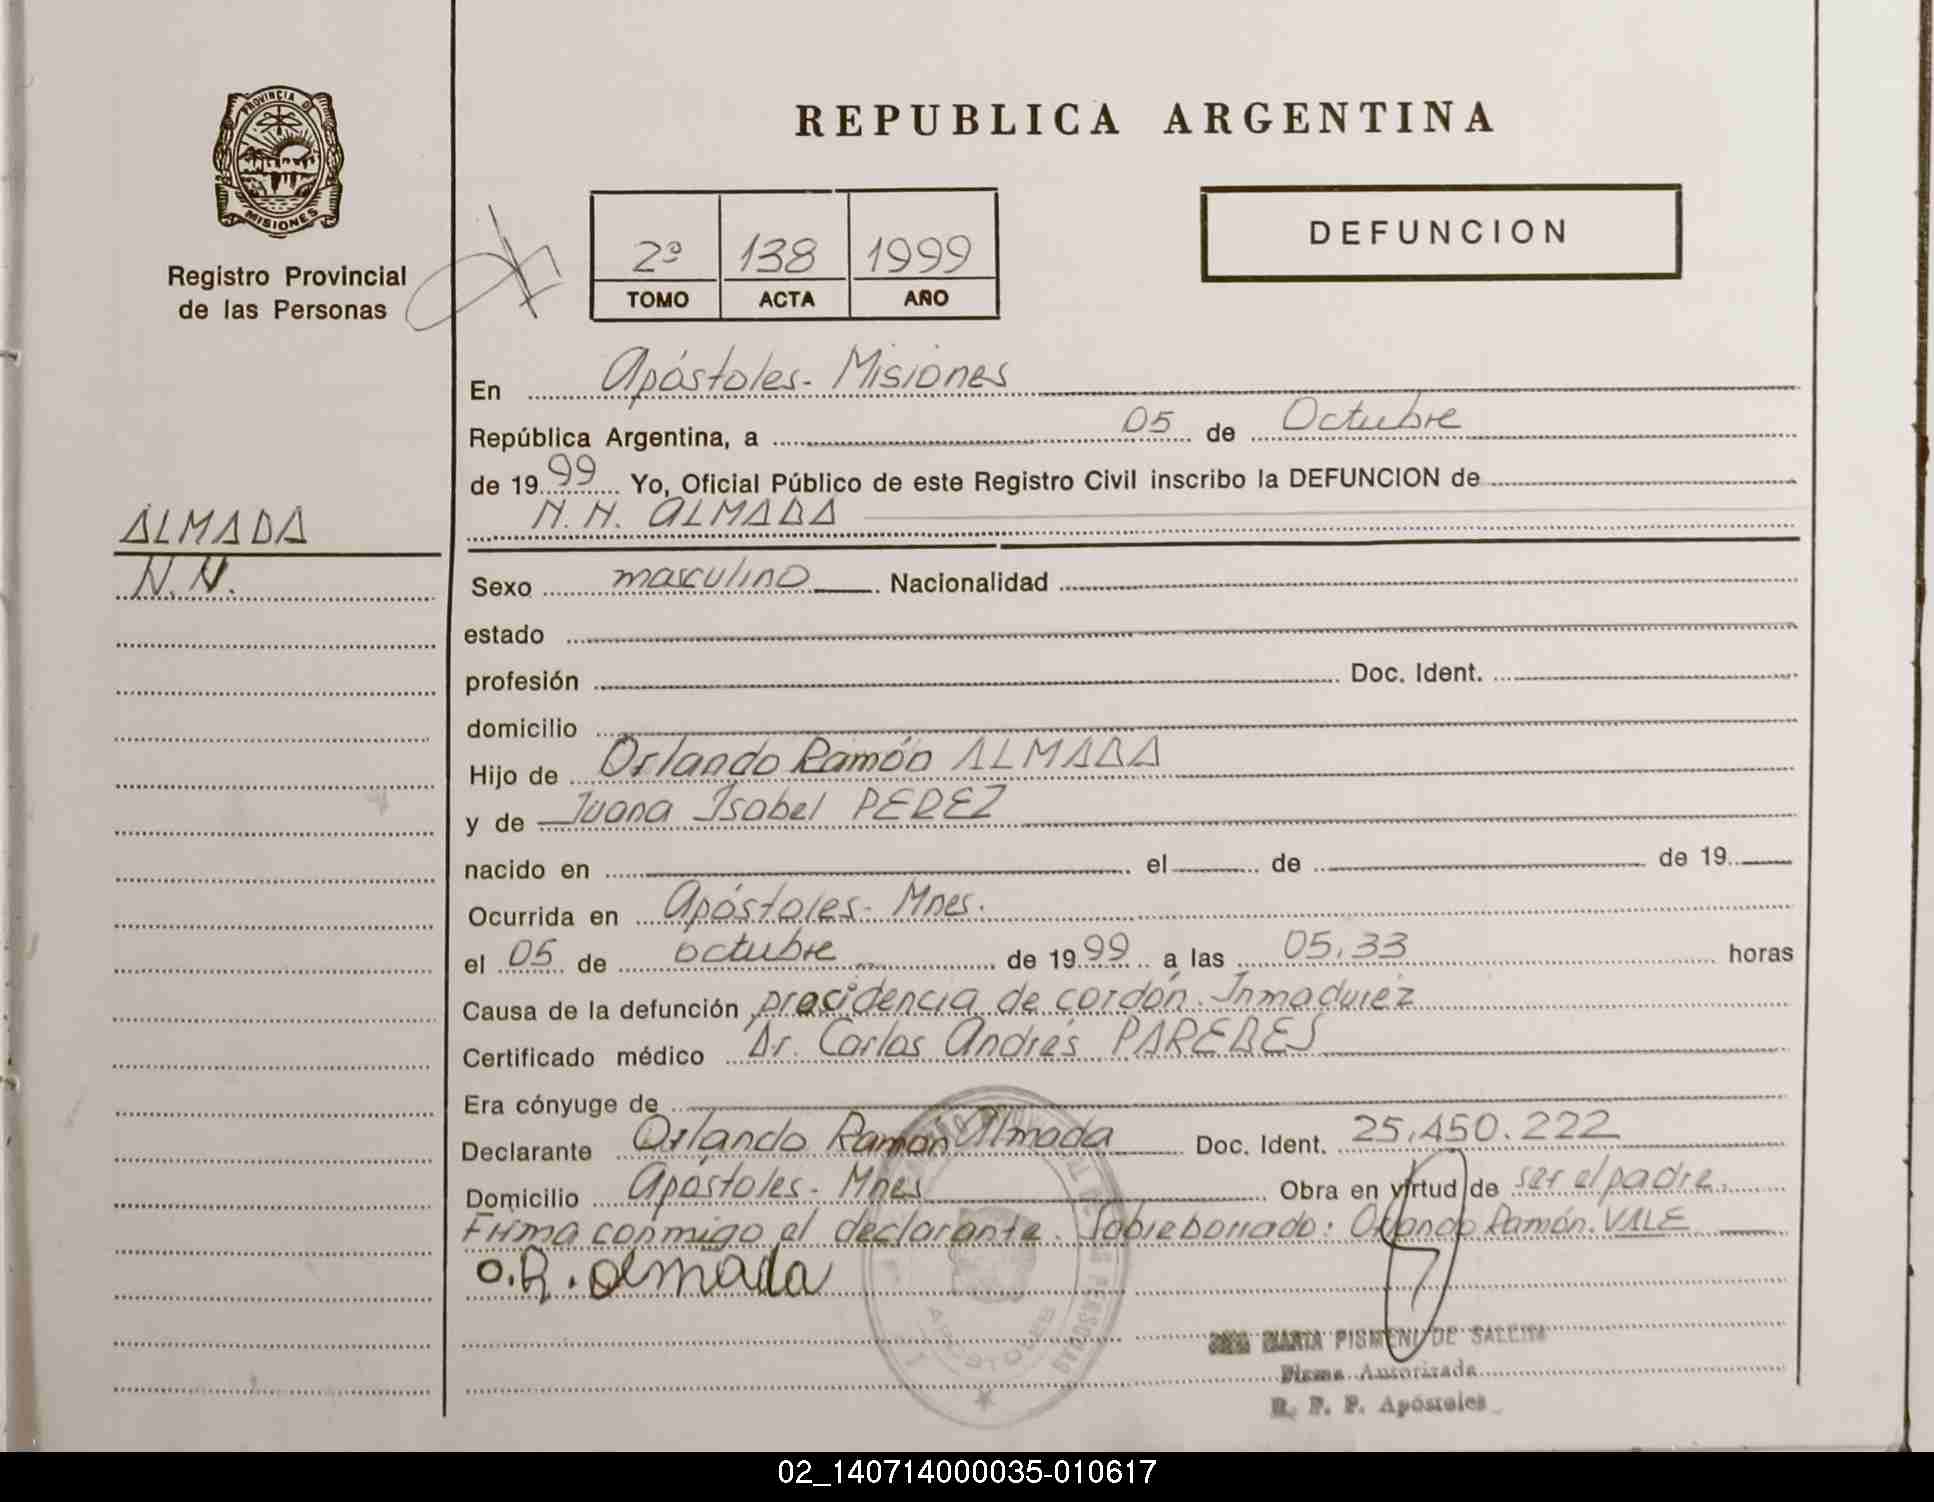 PROVINCIA D
MISIONES
Registro Provincial
de las Personas
REPUBLICA ARGENTINA
2º 138 1999
TOMO ACTA AÑO
DEFUNCION
En Apóstoles - Misiones
República Argentina, a 05 de Octubre
de 1999 Yo, Oficial Público de este Registro Civil inscribo la DEFUNCION de
N.N. ALMADA
ALMADA
N.N.
Sexo masculino. Nacionalidad
estado
profesión Doc. Ident.
domicilio
Hijo de Orlando Ramón ALMADA
y de Juana Isabel PEREZ
nacido en el de de 19
Ocurrida en Apóstoles - Mnes.
el 05 de octubre de 1999 a las 05,33 horas
Causa de la defunción procidencia de cordón. Inmadurez
Certificado médico Dr. Carlos Andrés PAREDES
Era cónyuge de
Declarante Orlando Ramón Almada Doc. Ident. 25.450.222
Domicilio Apóstoles - Mnes Obra en virtud de ser el padre.
Firma conmigo el declarante. Sobreborrado: Orlando Ramón. VALE
O.R. almada
PISMENI DE
Firma Autorizada
R. P. P. Apóstoles
APOSTOLES
02_140714000035-010617